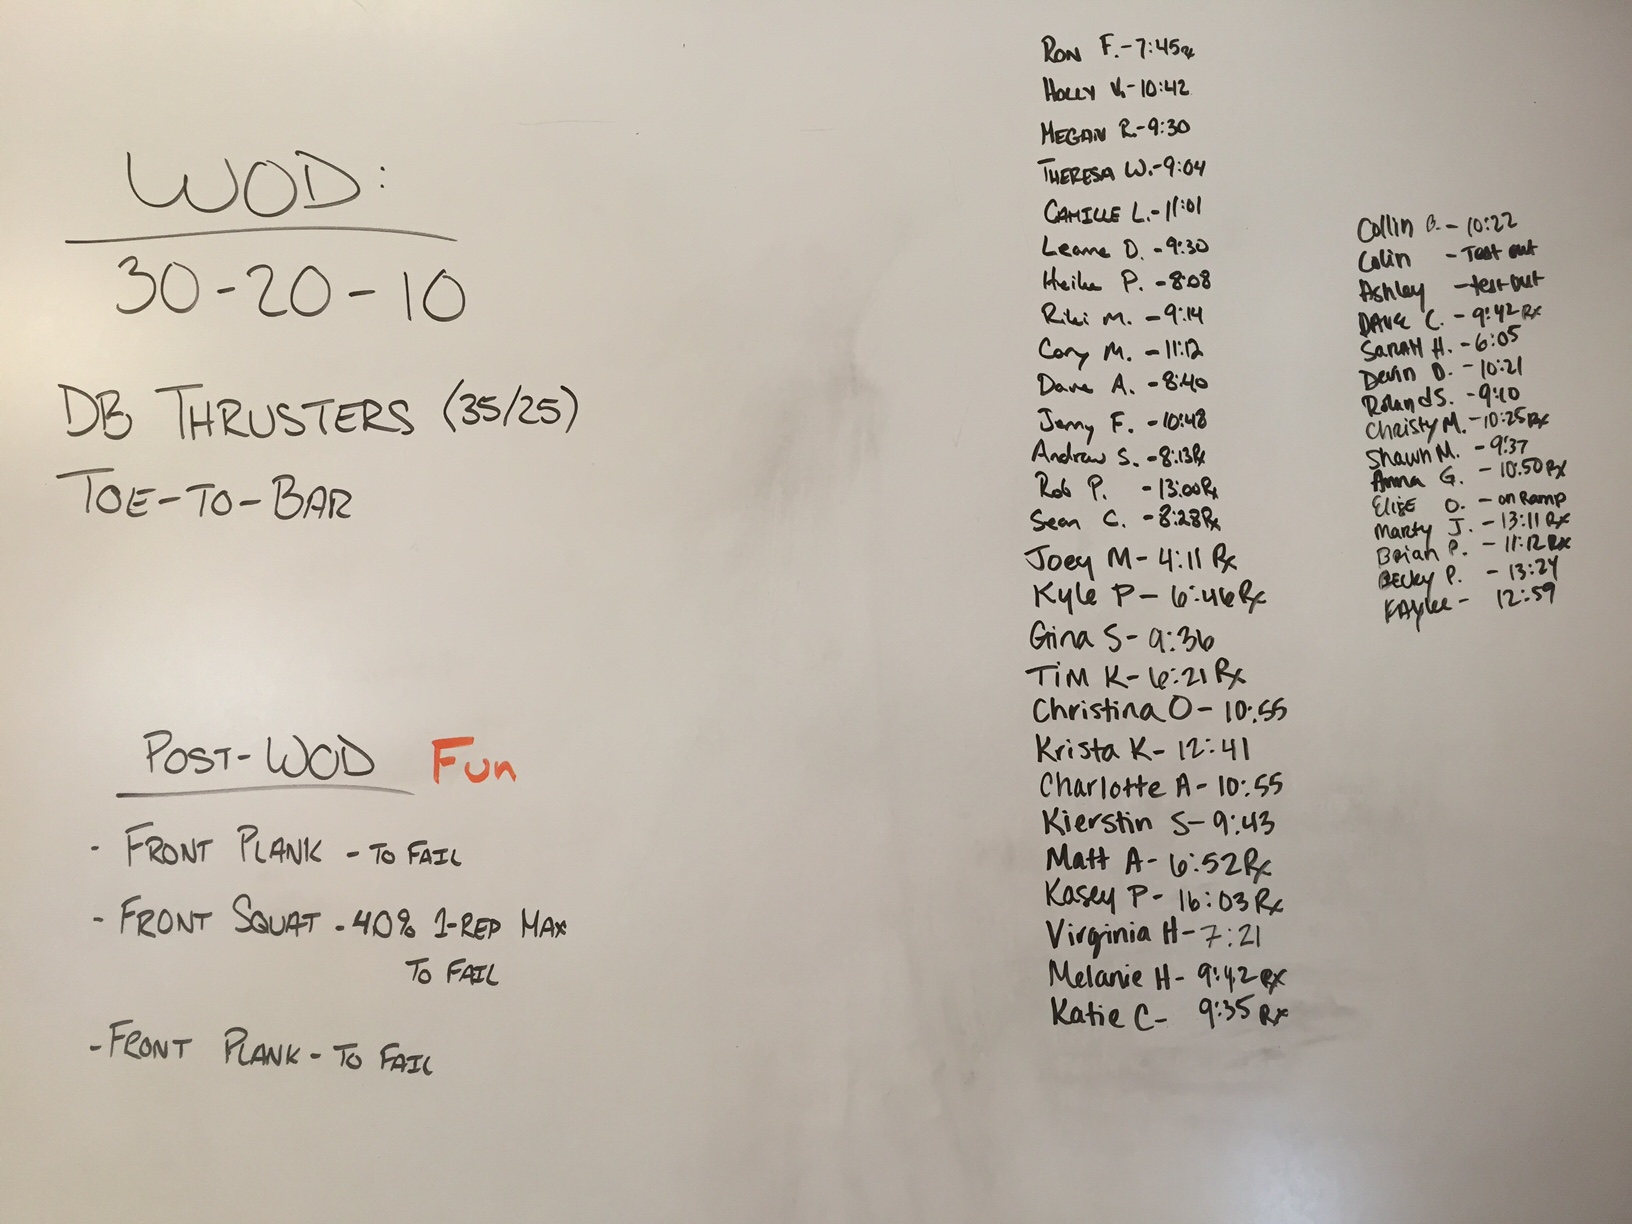 WOD:
30-20-10
DB THRUSTERS (35/25)
TOE-TO-BAR
POST-WOD Fun
- FRONT PLANK - TO FAIL
- FRONT SQUAT - 40% 1-REP MAX
TO FAIL
- FRONT PLANK - TO FAIL
RON F. - 7:45 Rx
HOLLY V. - 10:42
MEGAN R. - 9:30
THERESA W. - 9:04
CAMILLE L. - 11:01
Leanne D. - 9:30
Heike P. - 8:08
Riki M. - 9:14
Cory M. - 11:12
Dave A. - 8:40
Jenny F. - 10:48
Andrew S. - 8:13 Rx
Rob P. - 13:00 Rx
Sean C. - 8:28 Rx
Joey M - 4:11 Rx
Kyle P - 6:46 Rx
Gina S - 9:36
TiM K - 6:21 Rx
Christina O - 10:55
Krista K - 12:41
Charlotte A - 10:55
Kierstin S - 9:43
Matt A - 6:52 Rx
Kasey P - 16:03 Rx
Virginia H - 7:21
Melanie H - 9:42 Rx
Katie C - 9:35 Rx
Collin B. - 10:22
Colin - Test out
Ashley - test out
DAVE C. - 9:42 Rx
SARAH H. - 6:05
Devin D. - 10:21
Roland S. - 9:10
Christy M. - 10:25 Rx
Shawn M. - 9:37
Anna G. - 10:50 Rx
ELISE O. - on Ramp
Marty J. - 13:11 Rx
Brian P. - 11:12 Rx
BECKY P. - 13:24
KAylee - 12:59